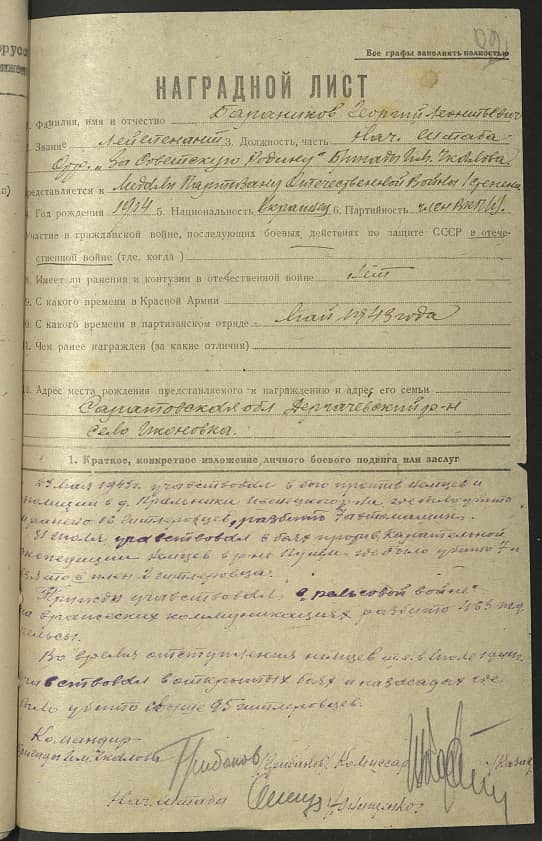 Все графы заполнять полностью
НАГРАДНОЙ ЛИСТ
1. Фамилия, имя и отчество Бараников Георгий Леонтьевич
2. Звание Лейтенант 3. Должность, часть Нач. Штаба
Отр. „За Советскую Родину" Бригады им. Чкалова
представляется к Медали Партизану Отечественной Войны I степени
4. Год рождения 1914 5. Национальность Украинец 6. Партийность член ВКП(б).
Участие в гражданской войне, последующих боевых действиях по защите СССР в отече-
ственной войне (где, когда)
8. Имеет ли ранения и контузии в отечественной войне Нет
9. С какого времени в Красной Армии
10. С какого времени в партизанском отряде Май 1943 года
11. Чем ранее награжден (за какие отличия)
12. Адрес места рождения представляемого к награждению и адрес его семьи
Саратовская обл Дергачевский р-н
село
1. Краткое, конкретное изложение личного боевого подвига или заслуг
Мая 1943г. участвовал в бою против немцев и
полиции в д. Ивенецкого р-на, где было убито
и ранено 16 гитлеровцев, разбито 7 автомашин.
Июля участвовал в боях против карательной
экспедиции немцев в р-не Пущи где было убито 7 и
взято в плен 2 гитлеровца.
участвовал в рельсовой войне
на вражеских коммуникациях разбито 465 шт.
рельсы.
Во время отступления немцев
участвовал в открытых боях и на засадах где
было убито свыше 95 гитлеровцев.
Командир
бригады им. Чкалова Грибанов /Грибанов/ Комиссар
Нач. штаба